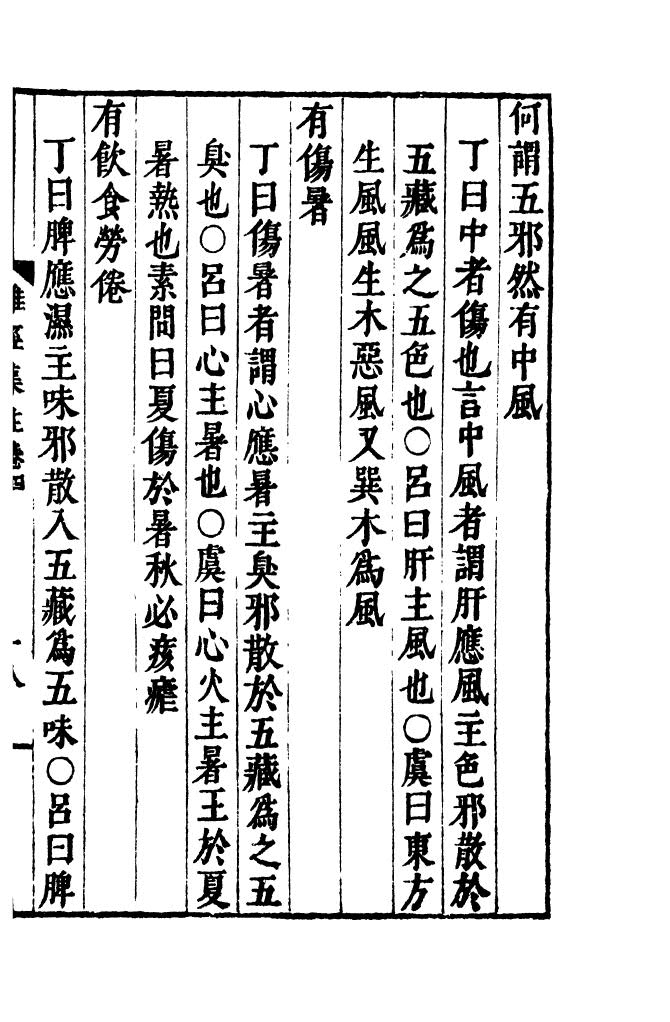 何謂五邪然有中風
丁曰中者傷也言中風者謂肝應風主色邪散於
五藏爲之五色也○呂曰肝主風也○虞曰東方
生風風生木惡風又巽木爲風
有傷暑
丁曰傷暑者謂心應暑主臭邪散於五藏爲之五
臭也○呂曰心主暑也○虞曰心火主暑王於夏
暑熱也素問曰夏傷於暑秋必痎瘧
有飲食勞倦
丁曰脾應濕主味邪散入五藏爲五味○呂曰脾
難經集註卷四
十八